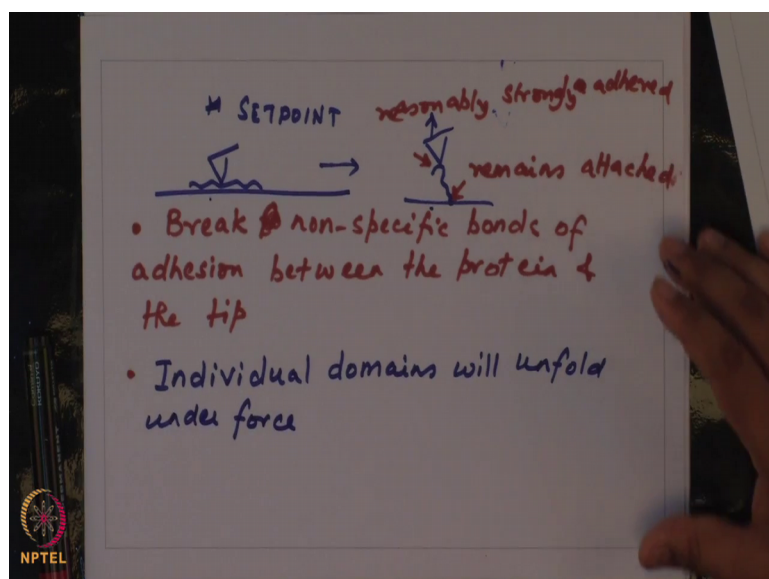 * SETPOINT
reasonably strongly adhered
remains attached.
• Break non-specific bonds of
adhesion between the protein &
the tip
• Individual domains will unfold
under force
NPTEL